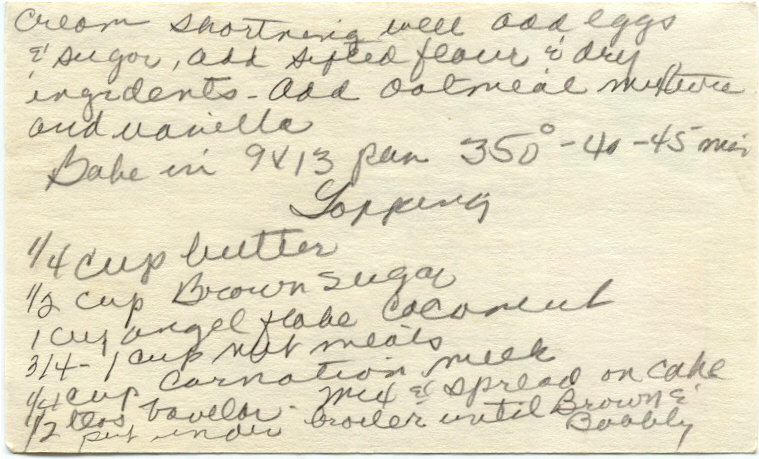 Cream shortning well add eggs
& sugar, add sifted flour & dry
ingridents - add oatmeal mixture
and vanilla
Bake in 9x13 pan 350° - 40 - 45 min
Topping
1/4 cup butter
1/2 cup Brown sugar
1 cup angel flake coconut
3/4 - 1 cup nut meats
1/4 cup carnation milk
1/2 vanella - Mix & spread on cake
put under broiler until Brown &
Boobly